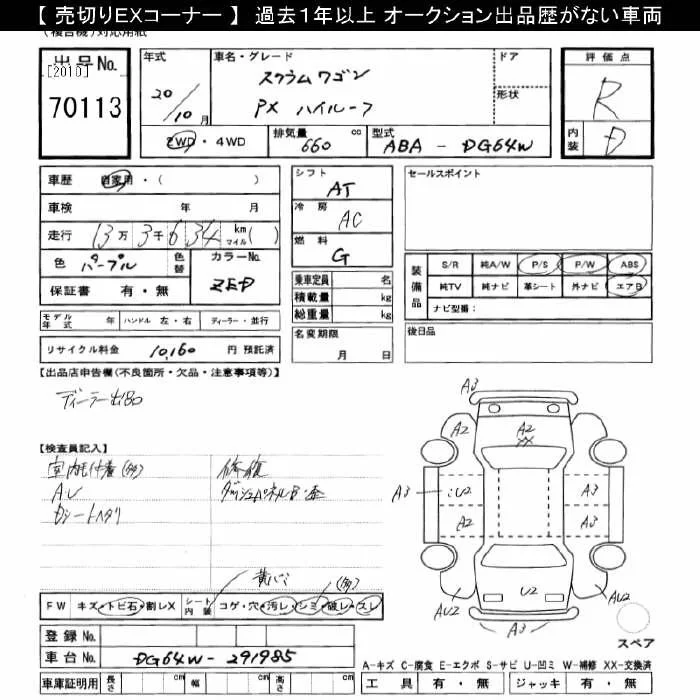 【 売切りEXコーナー 】 過去１年以上 オークション出品歴がない車両
(複合機)対応用紙
出品No.
[2010]
70113
年式
20/10月
車名・グレード
スクラムワゴン
PX ハイルーフ
ドア
形状
2WD・4WD
排気量
660 cc
型式
ABA - DG64W
評価点
R
内装
D
車歴 自家用・( )
車検 年 月
走行 13万3千634 km マイル( )
色 パープル 色替 カラーNo. ZED
保証書 有・無
モデル年式 年 ハンドル 左・右 ディーラー・並行
リサイクル料金 10,160 円 預託済
シフト
AT
冷房
AC
燃料
G
乗車定員 名
積載量 kg
総重量 kg
名変期限
月 日
セールスポイント
装備品
S/R 純A/W P/S P/W ABS
純TV 純ナビ 革シート 外ナビ エアB
ナビ型番：
後日品
【出品店申告欄(不良箇所・欠品・注意事項等)】
ディーラー出品
【検査員記入】
修復
FW キズ・トビ石・割レX シート内装 コゲ・穴・汚レ・シミ・破レ・スレ
(多)
登録No.
車台No. DG64W-291985
車庫証明用 長さ cm 幅 cm 高さ cm
A3
A2
A2
A2
U2
A3
A3
A2
A3
U2
AU2
AU2
A3
スペア
A-キズ C-腐食 E-エクボ S-サビ U-凹ミ W-補修 XX-交換済
工具 有・無 ジャッキ 有・無